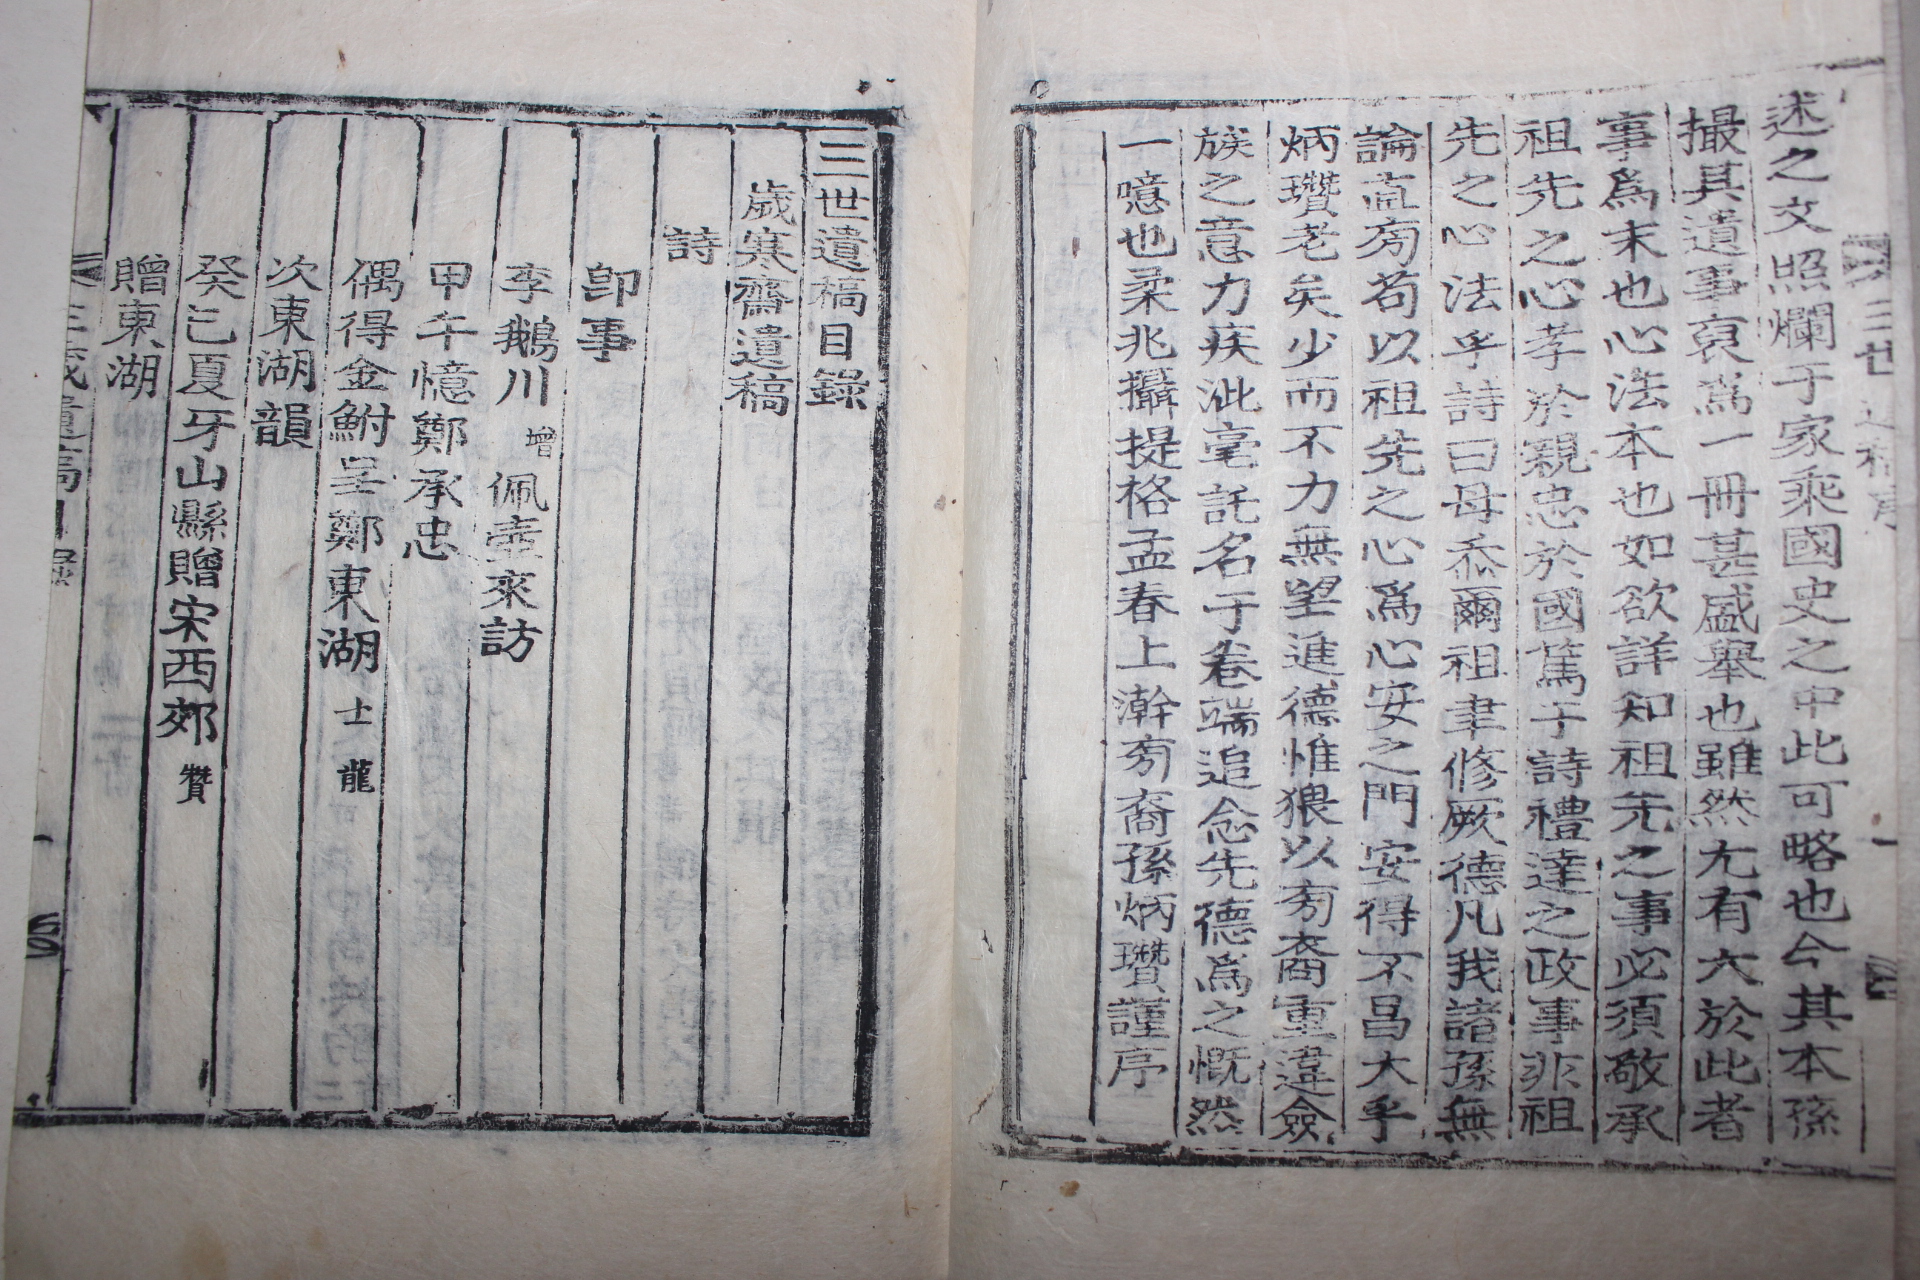 述之文照爛于家乘國史之中此可略也今其本孫
撮其遺事裒爲一冊甚盛擧也雖然尤有大於此者
事爲末也心法本也如欲詳知祖先之事必須敬承
祖先之心孝於親忠於國篤于詩禮達之政事非祖
先之心法乎詩曰毋忝爾祖聿修厥德凡我諸孫無
論直旁苟以祖先之心爲心安之門安得不昌大乎
炳瓚老矣少而不力無望進德惟猥以旁裔重違僉
族之意力疾泚毫託名于卷端追念先德爲之慨然
一噫也柔兆攝提格孟春上澣旁裔孫炳瓚謹序
三世遺稿目錄
歲寒齋遺稿
詩
卽事
李鵝川 增 佩壺來訪
甲午憶鄭承忠
偶得金鮒呈鄭東湖 士龍
次東湖韻
癸巳夏牙山縣贈宋西郊 贊
贈東湖
三世遺稿目錄